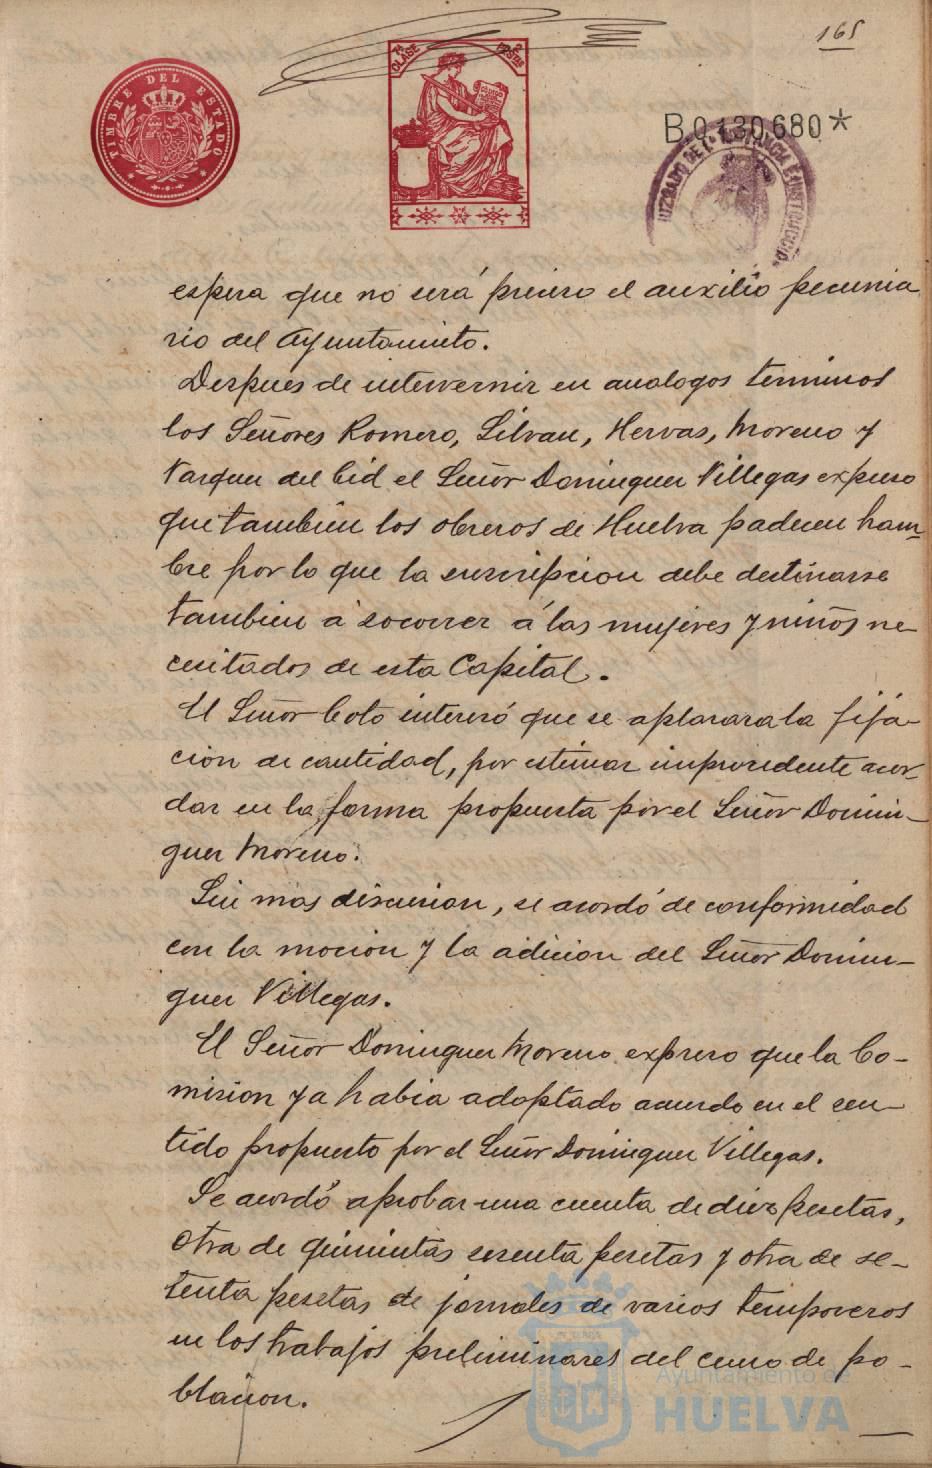 165
TIMBRE DEL ESTADO
7ª CLASE
2 PESETAS
B0130,680*
JUZGADO DE 1ª INSTANCIA E INSTRUCCIO.
espera que no será preciso el auxilio pecunia
rio del Ayuntamiento.
Despues de intervernir en analogos terminos
los Señores Romero, Silvan, Hervas, Moreno y
Vazquez del Cid el Señor Dominguez Villegas expuso
que tambien los obreros de Huelva padecen ham-
bre por lo que la suscripcion debe destinarse
tambien á socorrer á las mujeres y niños ne-
cesitados de esta Capital.
El Señor Coto interesó que se aplazara la fija-
cion de cantidad, por estimar improcedente acor-
dar en la forma propuesta por el Señor Domin-
guez Moreno.
Sin mas discusion, se acordó de conformidad
con la mocion y la adicion del Señor Domin-
guez Villegas.
El Señor Dominguez Moreno expreso que la Co-
mision ya habia adoptado acuerdo en el sen-
tido propuesto por el Señor Dominguez Villegas.
Se acordó aprobar una cuenta de diez pesetas,
otra de quinientas sesenta pesetas y otra de se-
tenta pesetas de jornales de varios temporeros
en los trabajos preliminares del censo de po-
blacion.
Ayuntamiento de
HUELVA